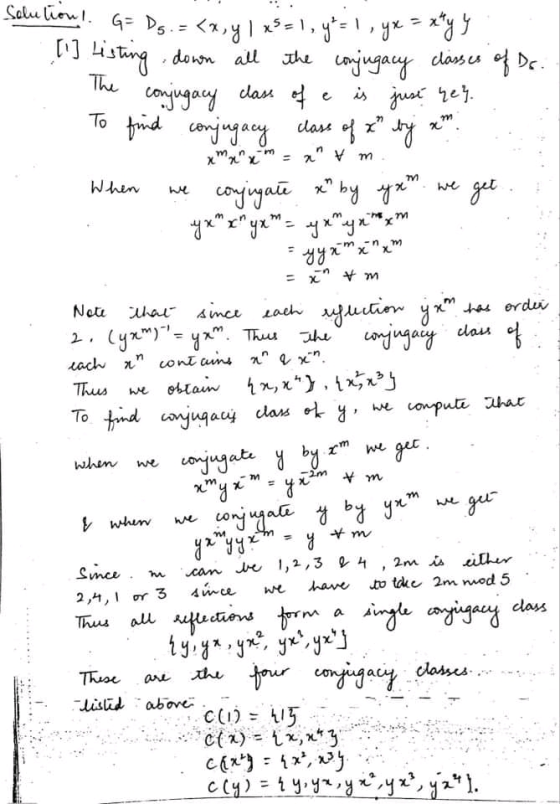 Solution 1. G = D₅. = <x,y | x⁵=1, y²=1, yx = x⁴y }
[1] Listing, down all the conjugacy classes of D₅.
The conjugacy class of e is just {e}.
To find conjugacy class of xⁿ by xᵐ.
xᵐxⁿx⁻ᵐ = xⁿ ∀ m.
When we conjugate xⁿ by yxᵐ we get.
yxᵐxⁿyxᵐ = yxᵐyx⁻ⁿxᵐ
= yyx⁻ᵐx⁻ⁿxᵐ
= x⁻ⁿ ∀ m
Note that since each reflection yxᵐ has order
2. (yxᵐ)⁻¹ = yxᵐ. Thus the conjugacy class of
each xⁿ contains xⁿ & x⁻ⁿ.
Thus we obtain {x,x⁴}, {x²,x³}
To find conjugacy class of y, we compute that
when we conjugate y by xᵐ we get.
xᵐyx⁻ᵐ = yx⁻²ᵐ ∀ m
& when we conjugate y by yxᵐ we get
yxᵐyyxᵐ = y ∀ m
Since m can be 1,2,3 & 4, 2m is either
2,4,1 or 3 since we have to take 2m mod 5
Thus all reflections form a single conjugacy class
{y, yx, yx², yx³, yx⁴}
These are the four conjugacy classes.
listed above
C(1) = {1}
C(x) = {x, x⁴}
C(x²) = {x², x³}
C(y) = {y, yx, yx², yx³, yx⁴}.